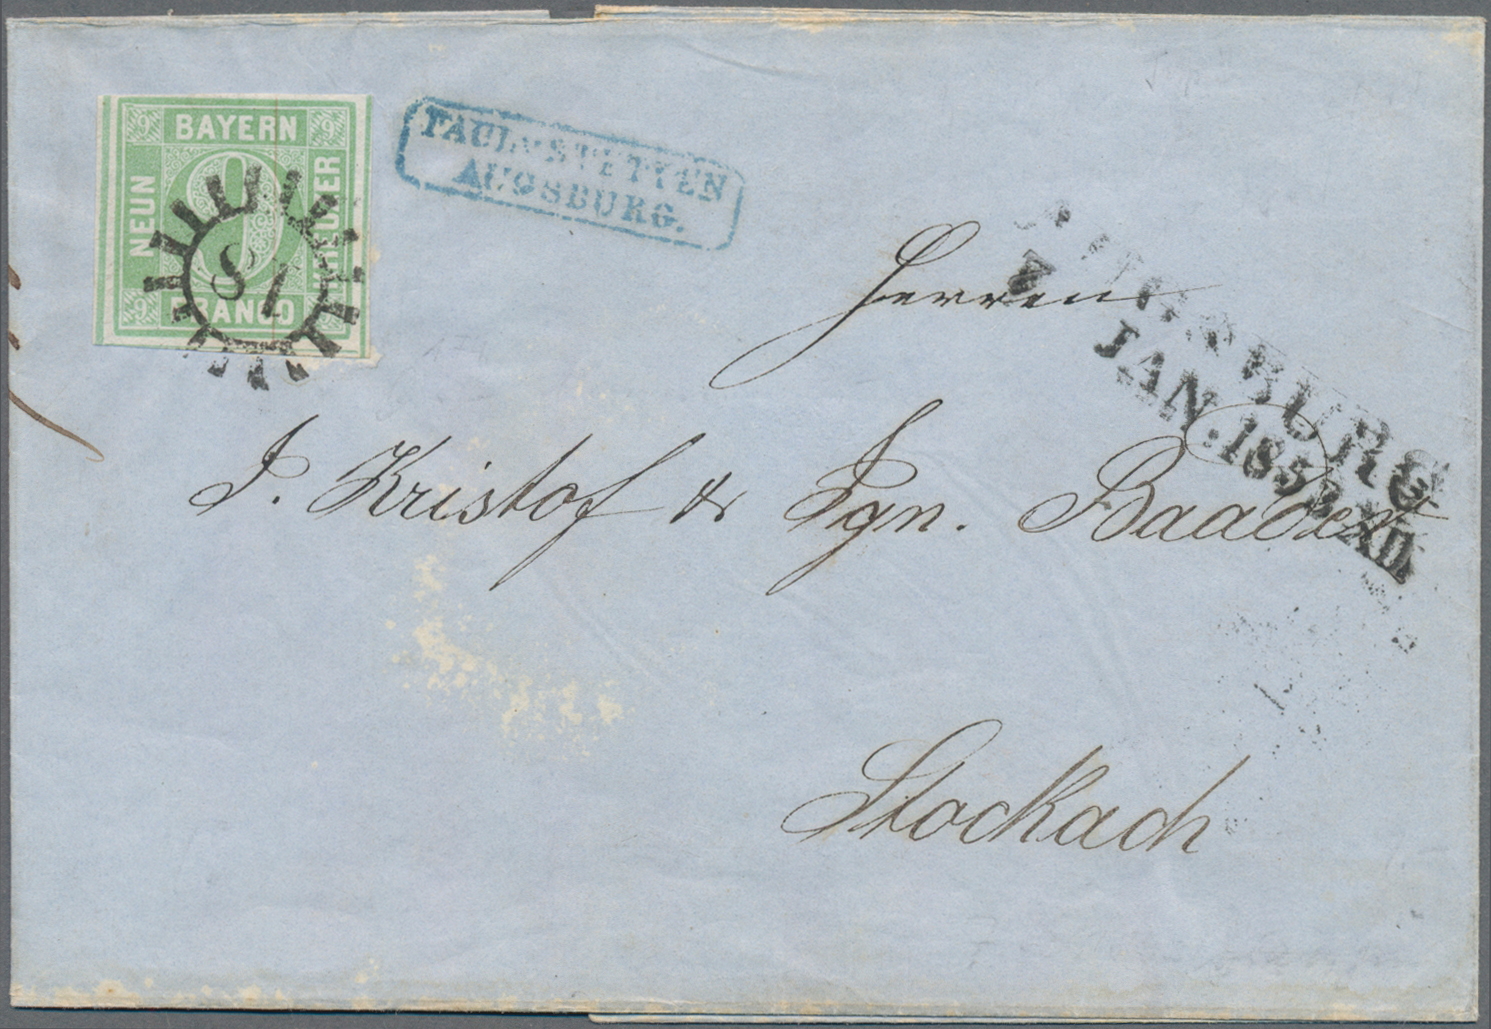 9 BAYERN 9
NEUN
9
KREUZER
9 FRANCO 9
18
PAUL v STETTEN
AUGSBURG.
AUGSBURG
7
JAN. 185 XII
Herren
J. Kristof & Ign. Baader
Stockach